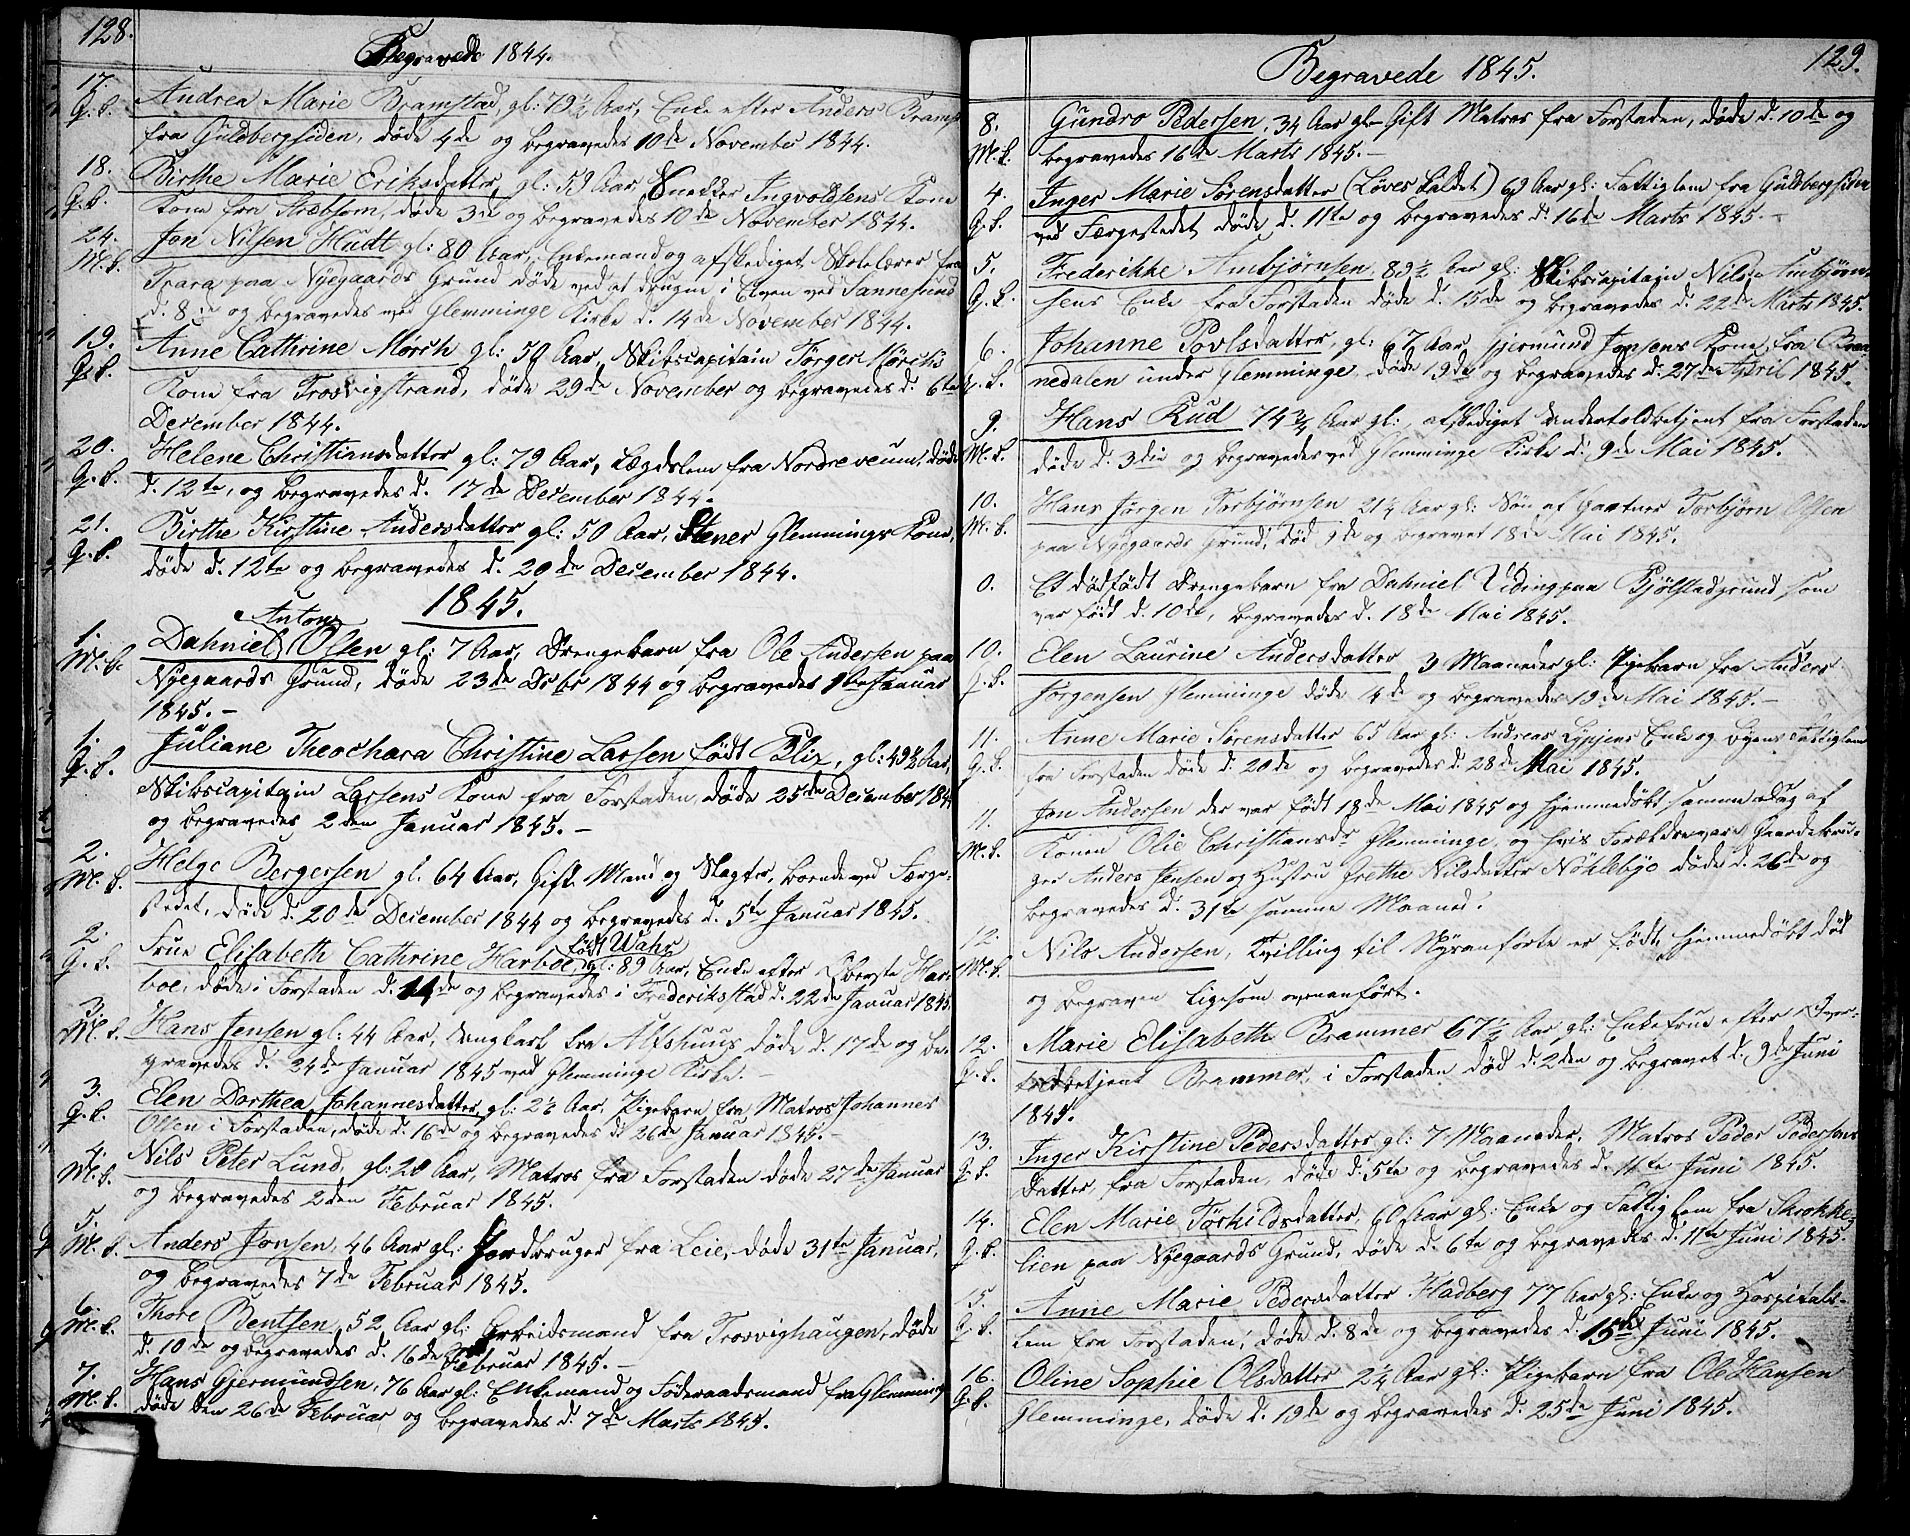 128.
Begravede 1844.
17. Andrea Marie Bramstad, gl: 79½ Aar, Enke efter Anders Bramst
Q.K. fra Guldbergsiden, døde 4de og begravedes 10de November 1844.
18. Birthe Marie Eriksdatter, gl: 59 Aar, Snekker Ingvoldsens Kone
Q.K. Kone fra Kræbsom, døde 3die og begravedes 10de November 1844.
24. Jon Nilsen Hudt gl: 80 Aar, Enkemand og afskediget Skolelærer fra
M.K. Trara paa Nyegaards Grund døde ved at drugne i Elven ved Sannesund
d. 8de og begravedes ved Glemminge Kirke d. 14de November 1844.
19. Anne Cathrine Mørch gl: 59 Aar, Skibscapitain Jørger Mørchs
Q.K. Kone fra Trosvigstrand, døde 29de November og begravedes d. 6te
December 1844.
20. Helene Christiansdatter gl: 79 Aar, Lægdslem fra Nordre Veum, døde
Q.K. d. 12te, og begravedes d. 17de December 1844.
21. Birthe Kirstine Andersdatter gl: 50 Aar, Stener Glemmings Kone,
Q.K. døde d. 12te og begravedes d. 20de December 1844.
1845.
Anton
1. Dahniel Olsen gl: 7 Aar, Drengebarn fra Ole Andersen paa
M.K. Nyegaards Grund, døde 23de Dcbr 1844 og begravedes 1ste Januar
1845.-
1. Juliane Theochara Christine Larsen født Blix, gl: 49½ Aar,
Q.K. Skibscapitain Larsens Kone fra Forstaden, døde 25de December 1844
og begravedes 2den Januar 1845.-
2. Helge Bergersen gl. 64 Aar, Gift Mand og Slagter, boende ved Færge-
M.K. stedet, døde d. 20de December 1844 og begravedes d. 5te Januar 1845.
født Wahr
2. Frue Elisabeth Cathrine Harboe, gl: 89 Aar, Enke efter Oberste Har-
Q.K. boe, døde i Forstaden d. 14de og begravedes i Frederiksstad d. 22de Januar 1845.
3. Hans Jensen gl: 44 Aar, Ungkarl fra Altshuus døde d. 17de og be-
M.K. gravedes d. 24de Januar 1845 ved Glemminge Kirke.-
3. Elen Dorthea Johannesdatter, gl: 2½ Aar, Pigebarn fra Matros Johannes
Q.K. Olsen i Forstaden, døde d. 16de og begravedes d. 26de Januar 1845.-
4. Nils Peter Lund, gl: 28 Aar, Matros fra Forstaden døde 27de Januar
M.K. og begravedes 2den Februar 1845.
5. Anders Jonsen, 46 Aar gl: Jordbruger fra Leie, døde 31te Januar,
M.K. og begravedes 7de Februar 1845.
6. Thore Bentsen, 52 Aar gl: Arbeidsmand fra Trosvighaugen, døde
M.K. d. 10de og begravedes d. 16de Februar 1845.-
7. Hans Gjermundsen, 76 Aar gl: Enkemand og Føderaadsmand fra Glemminge
M.K. døde den 26de Februar og begravedes d. 7de Marts 1845.
129.
Begravede 1845.
8. Gundro Pedersen, 34 Aar gl- Gift Matros fra Forstaden, døde d. 10de og
M.K. begravedes 16de Marts 1845.-
4. Inger Marie Sørensdatter (Løves kaldet) 69 Aar gl: Fattiglem fra Guldbergsiden
Q.K. ved Færgestedet døde d. 11te og begravedes d. 16de Marts 1845.-
5. Frederikke Ambjørnsen, 89½ Aar gl: Skibscapitain Nils Ambjørn-
Q.K. sens Enke fra Forstaden døde d. 15de og begravedes d. 22de Marts 1845.
6. Johanne Povlsdatter, gl: 67 Aar, Gjermund Jonsens Kone, fra
Q.K. nedalen under Glemminge, døde 19de og begravedes d. 27de April 1845.
9. Hans Rud 74¾ Aar gl:, afskediget Undertoldbetjent fra Forstaden
M.K. døde d. 3die og begravedes ved Glemminge Kirke d. 9de Mai 1845.
10. Hans Jørgen Torbjørnsen 21¼ Aar gl: Søn af Gartner Torbjørn Olsen
M.K. paa Nyegaards Grund, død 9de og begravet 18de Mai 1845.
0. Et dødfødt Drengebarn fra Dahniel Viding paa Bjølstadgrund, som
var født d. 10de, begravedes d. 18de Mai 1845.
10. Elen Laurine Andersdatter 3 Maaneder gl: Pigebarn fra Anders
Q.K. Jørgensen Glemminge døde 4de og begravedes 19de Mai 1845.-
11. Anne Marie Sørensdatter 65 Aar gl: Andreas Enke og Byens Fattiglem
Q.K. fra Forstaden døde d. 20de og begravedes d. 28de Mai 1845.
11. Jon Andersen der var født 18de Mai 1845 og hjemmedøbt samme Dag af
M.K. Konen Olie Christiansdr Glemminge, og hvis Forældre var Gaardbru-
ger Anders Jensen og Hustru Grethe Nilsdatter Nøhlebye døde d. 26de og
begravedes d. 31te samme Maaned.
12. Nils Andersen, Tvilling til Nysanførte er født, hjemmedøbt død
M.K. og begraven ligesom ovenanført.
12. Marie Elisabeth Brammer 67½ Aar gl: Enkefrue efter Over-
Q.K. toldbetjent Brammer, i Forstaden død d. 2den og begravet d. 9de Juni
1845.
13. Inger Kirstine Pedersdatter gl: 7 Maaneder, Matros Peder Pedersens
Q.K. Datter fra Forstaden, døde d. 5te og begravedes d. 11te Juni 1845.
14. Elen Marie Tørkildsdatter, 60 Aar gl: Enke og Fattiglem fra Skrokke-
Q.K. lien paa Nyegaards Grund, døde d. 6te og begravedes d. 11te Juni 1845.
15. Anne Marie Pedersdatter Hladberg 77 Aar gl: Enke og Hospitals-
Q.K. lem fra Forstaden, døde d. 8de og begravedes d. 15de Juni 1845.
16. Oline Sophie Olsdatter 2¼ Aar gl: Pigebarn fra Ole Hansen
Q.K. Glemminge, døde d. 19de og begravedes d. 25de Juni 1845.